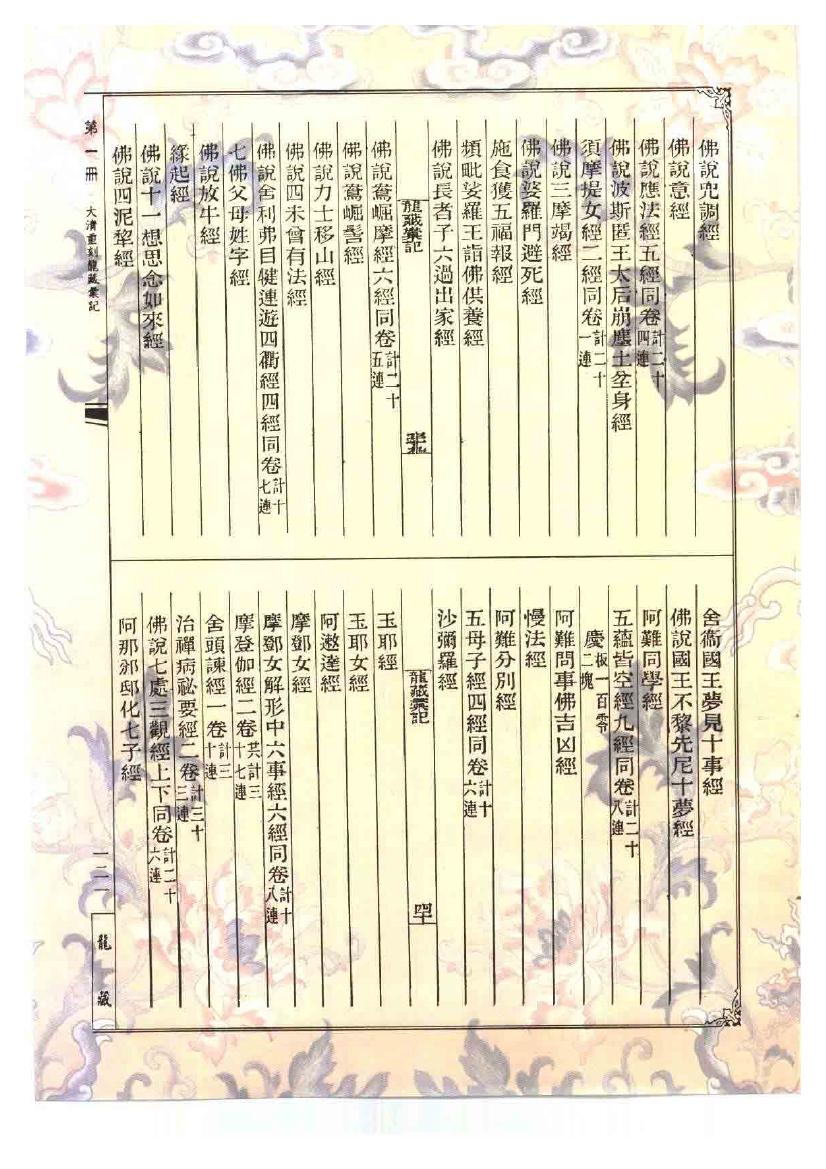 佛說兜調經
佛說意經
佛說應法經五經同卷計二十四連
佛說波斯匿王太后崩塵土坌身經
須摩提女經二經同卷計二十一連
佛說三摩竭經
佛說婆羅門避死經
施食獲五福報經
頻毗娑羅王詣佛供養經
佛說長者子六過出家經
龍藏彙記
佛說鴦崛摩經六經同卷計二十五連
佛說鴦崛髻經
佛說力士移山經
佛說四未曾有法經
佛說舍利弗目犍連遊四衢經四經同卷計十七連
七佛父母姓字經
佛說放牛經
緣起經
佛說十一想思念如來經
佛說四泥犂經
舍衞國王夢見十事經
佛說國王不黎先尼十夢經
阿難同學經
五蘊皆空經九經同卷計二十八連
慶板一百零二塊
阿難問事佛吉凶經
慢法經
阿難分別經
五母子經四經同卷計十六連
沙彌羅經
龍藏彙記
四十
玉耶經
玉耶女經
阿遬達經
摩鄧女經
摩鄧女解形中六事經六經同卷計十八連
摩登伽經二卷共計三十七連
舍頭諫經一卷計三十連
治禪病祕要經二卷計三十三連
佛說七處三觀經上下同卷計二十六連
阿那邠邸化七子經
第一冊
大清重刻龍藏彙記
一二一
龍藏